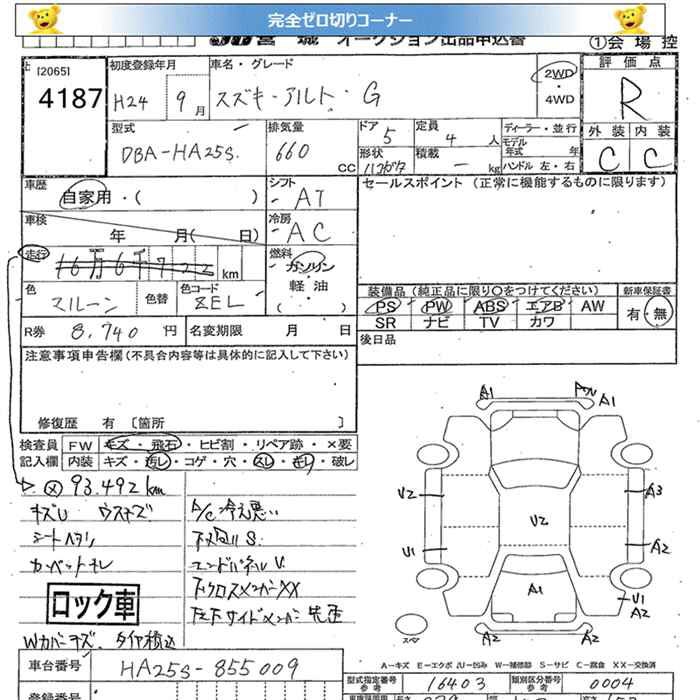 完全ゼロ切りコーナー
宮城 オークション出品申込書 ①会場控
[2065]
4187
初度登録年月
H24 9月
車名・グレード
スズキ・アルト・G
2WD
・
4WD
評価点
R
外装 内装
C C
型式
DBA-HA25S
排気量
660 CC
ドア 5
形状
定員 4 人
積載 - kg
ディーラー・並行
モデル年式 年
ハンドル 左・右
車歴
自家用・( )
シフト
AT
セールスポイント (正常に機能するものに限ります)
車検
年 月( 日)
冷房
AC
走行
km
燃料
ガソリン
軽・油
( )
色
マルーン
色替
色コード
ZEL
装備品 (純正品に限り○をつけてください)
新車保証書
PS PW ABS エアB AW
有・無
SR ナビ TV カワ
R券 8,740 円
名変期限 月 日
後日品
注意事項申告欄 (不具合内容等は具体的に記入して下さい)
修復歴 有 〔箇所 〕
検査員 FW キズ・飛石・ヒビ割・リペア跡・×要
記入欄 内装 キズ・汚レ・コゲ・穴・スレ・キレ・破レ
93.492km
キズU ウスキズ
シートヘタリ
カーペットキレ
ロック車
Wカバーキズ、タイヤ積込
A/C冷え悪い
下廻りS
エンドパネルU
下クロスメンバーXX
左下サイドメンバー先歪
A1 A1
U2 A3
U2
U1 A2
A1
U1
A2
A2 A2
スペア
A-キズ E-エクボ U-凹み W-補修跡 S-サビ C-腐食 XX-交換済
車台番号 HA25S-855009
型式指定番号 参考 16403
類別区分番号 参考 0004
登録番号